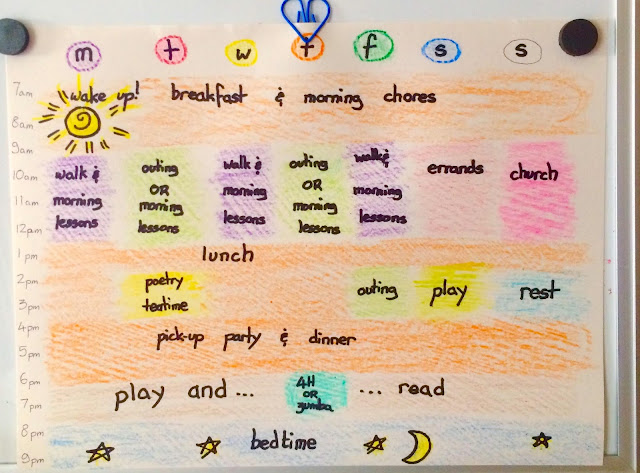 m t w t f s s
7am wake up! breakfast & morning chores
8am
9am
10am
11am
12am
walk &
morning
lessons
outing
OR
morning
lessons
walk &
morning
lessons
outing
OR
morning
lessons
walk &
morning
lessons
errands
church
1 pm lunch
2pm
3pm
poetry
teatime
outing
play
rest
4pm pick-up party & dinner
5pm
6pm
7pm
play and... 
4H
OR
zumba
... read
8pm bedtime
9pm